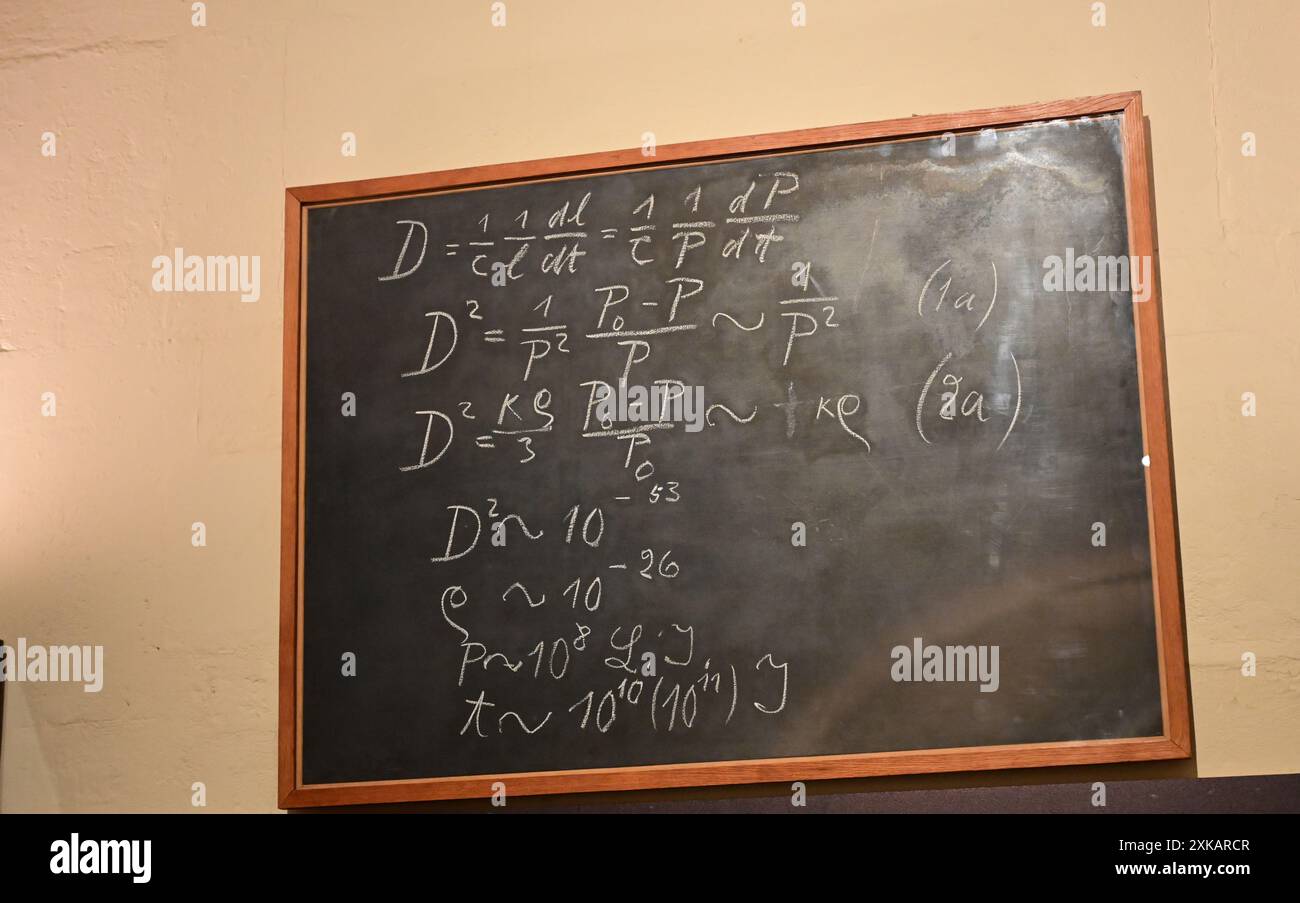 D = 1/c 1/l dl/dt = 1/c 1/P dP/dt
D² = 1/P² P₀-P/P ~ 1/P² (1a)
D² = κϱ/3 P₀-P/P₀ ~ κϱ (2a)
D² ~ 10⁻⁵³
ϱ ~ 10⁻²⁶
P ~ 10⁸ L.J
t ~ 10¹⁰(10¹¹) J
alamy
Image ID: 2XKARCR
www.alamy.com